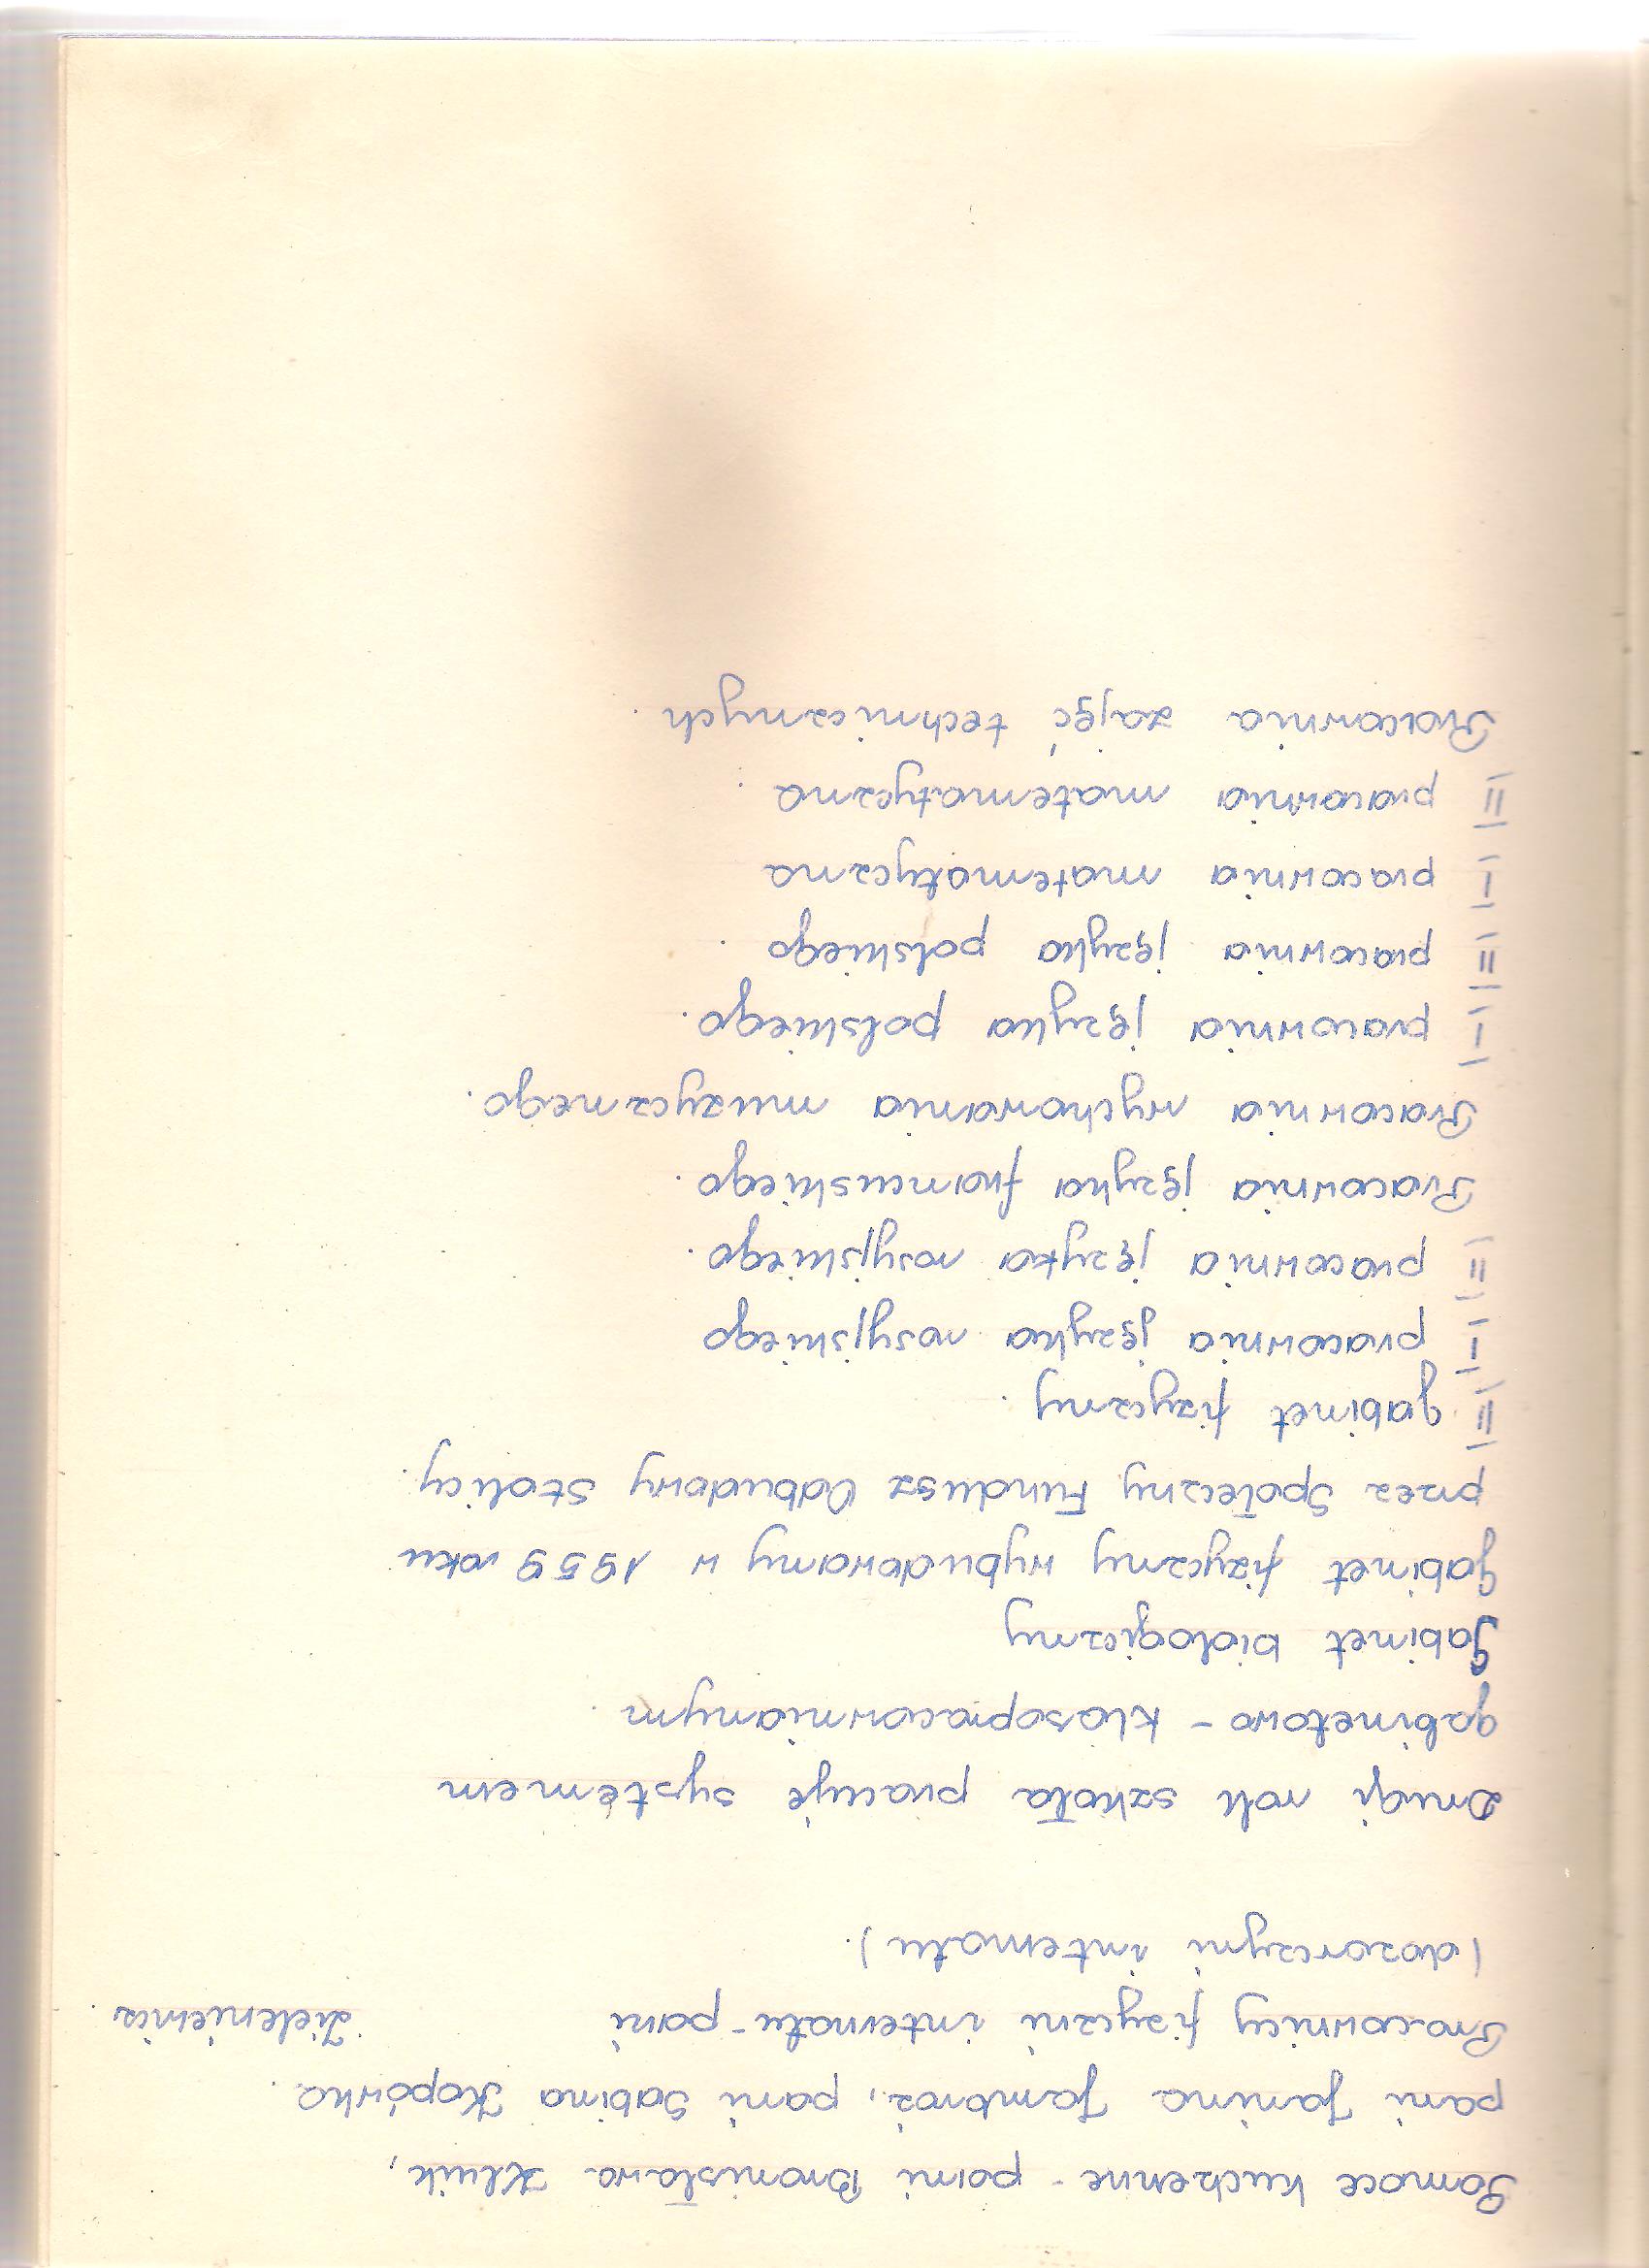 Pomoce kuchenne - pani Bronisława Kluik,
pani Janina Jambroż, pani Sabina Kopówka.
Pracownicy fizyczni internatu - pani Zielenienia.
(dozorczyni internatu).
Drugi rok szkoła pracuje systemem
gabinetowo - klasopracownianym.
Gabinet biologiczny
Gabinet fizyczny wybudowany w 1959 roku
przez Społeczny Fundusz Odbudowy Stolicy.
II gabinet fizyczny.
I pracownia języka rosyjskiego
II pracownia języka rosyjskiego.
Pracownia języka francuskiego.
Pracownia wychowania muzycznego.
I pracownia języka polskiego.
II pracownia języka polskiego.
I pracownia matematyczna
II pracownia matematyczna.
Pracownia zajęć technicznych.